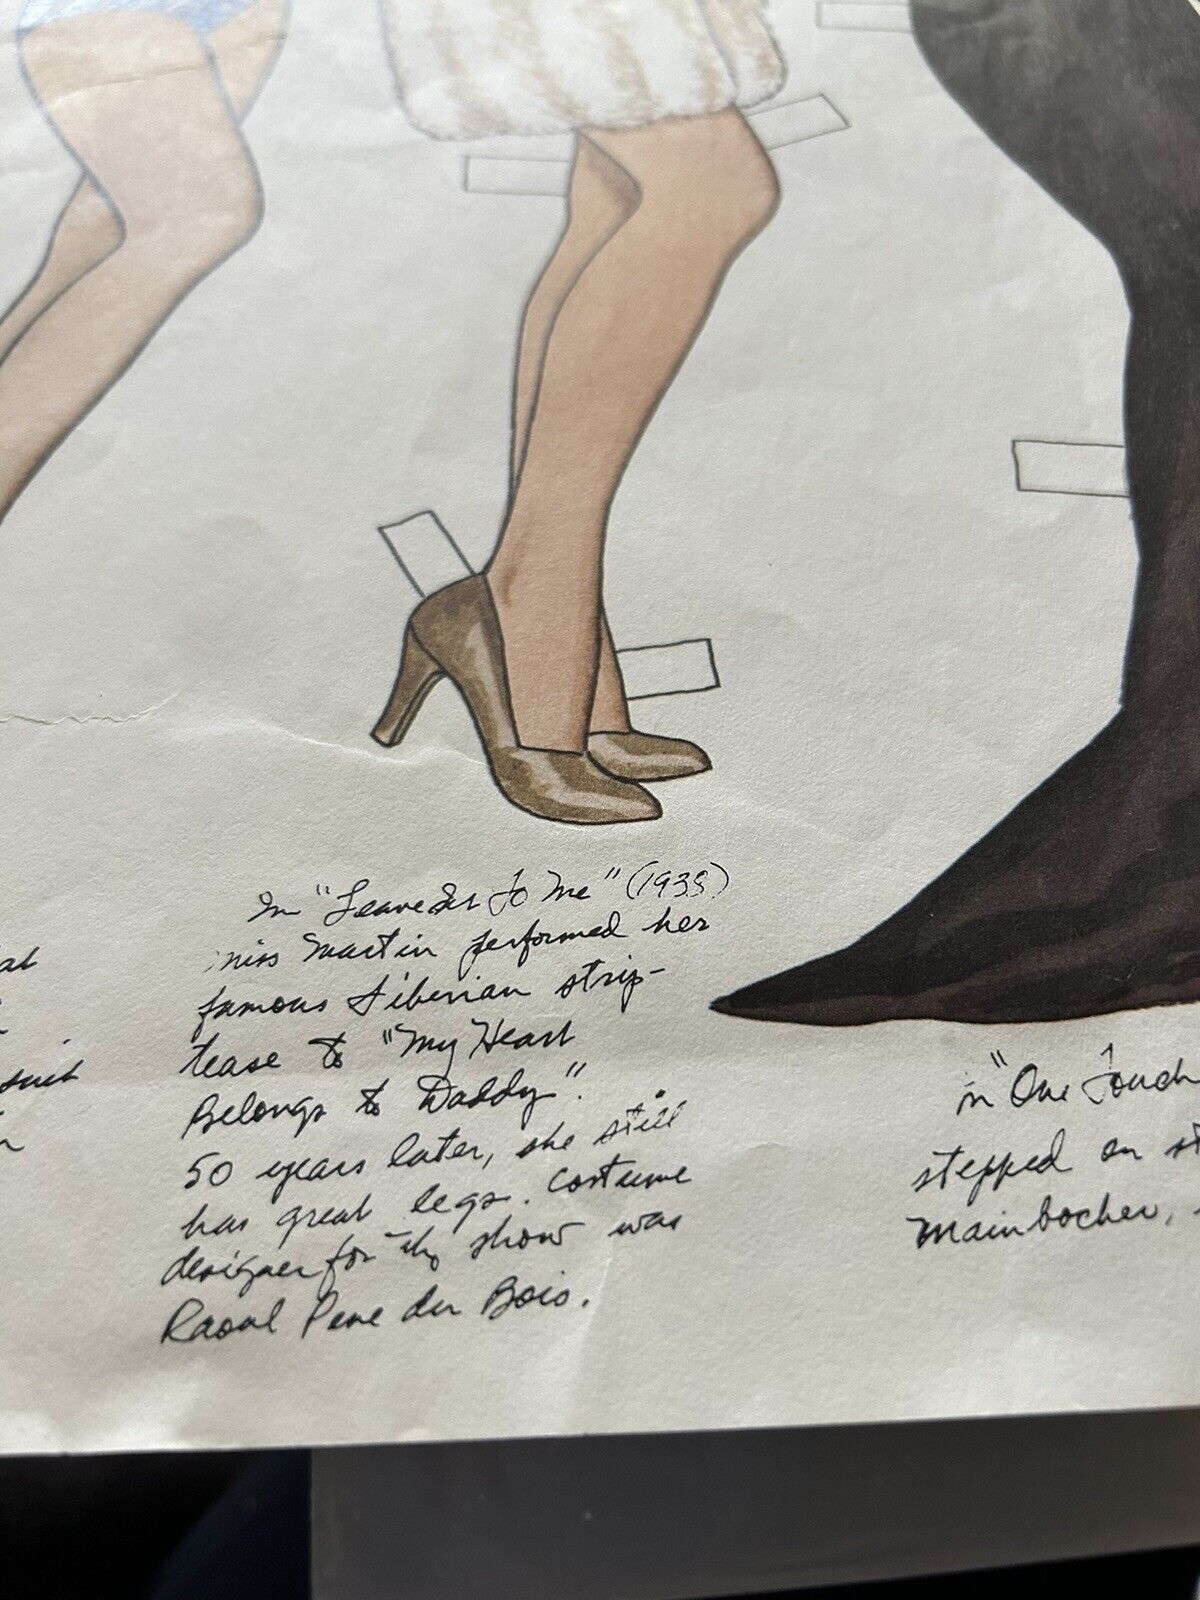 In "Leave It to Me" (1938)
miss Martin performed her
famous Siberian strip-
tease to "My Heart
Belongs to Daddy".
50 years later, she still
has great legs. Costume
designer for the show was
Raoul Pene du Bois.
in "One Touch
stepped on st
Mainbocher,
suit